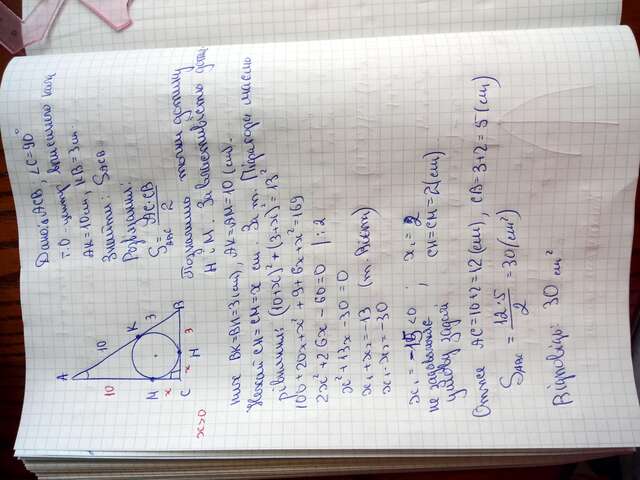 Дано: △ACB, ∠C=90°
т.О центр вписаного кола
AK=10см, KB=3см
Знайти: S△ACB
Розв'язання:
S△ABC = AC·CB / 2
Позначимо точки дотику
H і M. За властивістю дот.
них BK=BH=3(см), AK=AM=10(см).
Нехай CH=CM=x см. За т. Піфагора маємо
рівняння: (10+x)²+(3+x)²=13²
100+20x+x²+9+6x+x²=169
2x²+26x-60=0 |:2
x²+13x-30=0
x₁+x₂=-13 (т. Вієта)
x₁·x₂=-30
x₁=-15<0 ; x₂=2
не задовольняє CH=CM=2(см)
умову задачі
Отже AC=10+2=12(см), CB=3+2=5(см)
S△ABC = 12·5 / 2 = 30(см²)
Відповідь: 30 см²
A
10
10
K
M
C
x
x
H
3
B
3
x>0